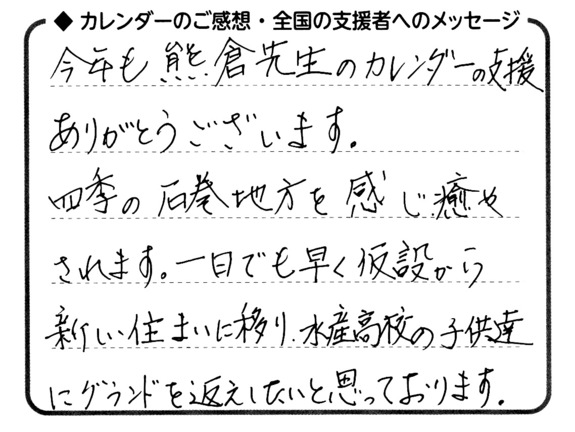 ◆ カレンダーのご感想・全国の支援者へのメッセージ
今年も熊倉先生のカレンダーの支援
ありがとうございます。
四季の石巻地方を感じ癒や
されます。一日でも早く仮設から
新しい住まいに移り、水産高校の子供達
にグランドを返えしたいと思っております。